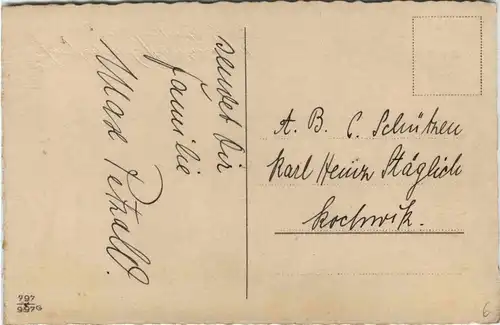 sendet Dir
Familie
Max Petzold.
A. B. C. Schützen
Karl Heinz Stäglich
Kochwik.
797
5
9976
6